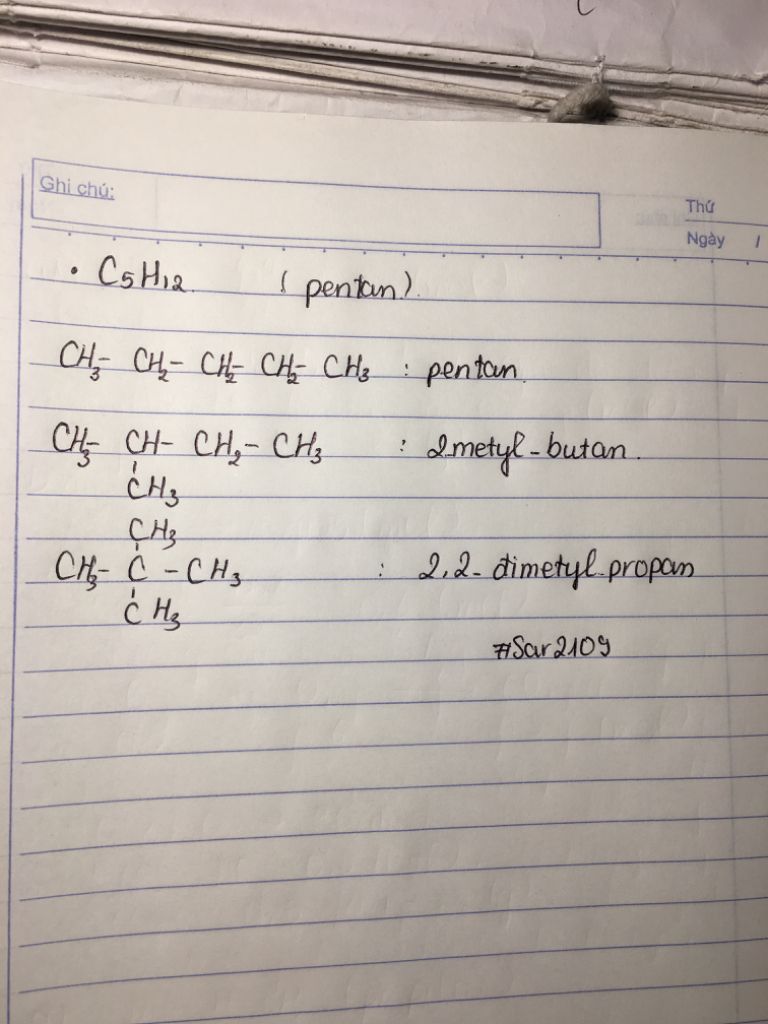 Ghi chú:
Thứ
Ngày /
• C5H12 (pentan).
CH3- CH2- CH2- CH2- CH3 : pentan.
CH3- CH- CH2- CH3 : 2metyl-butan.
CH3
CH3
CH3- C -CH3 : 2,2- đimetyl-propan
CH3
#Sar2109